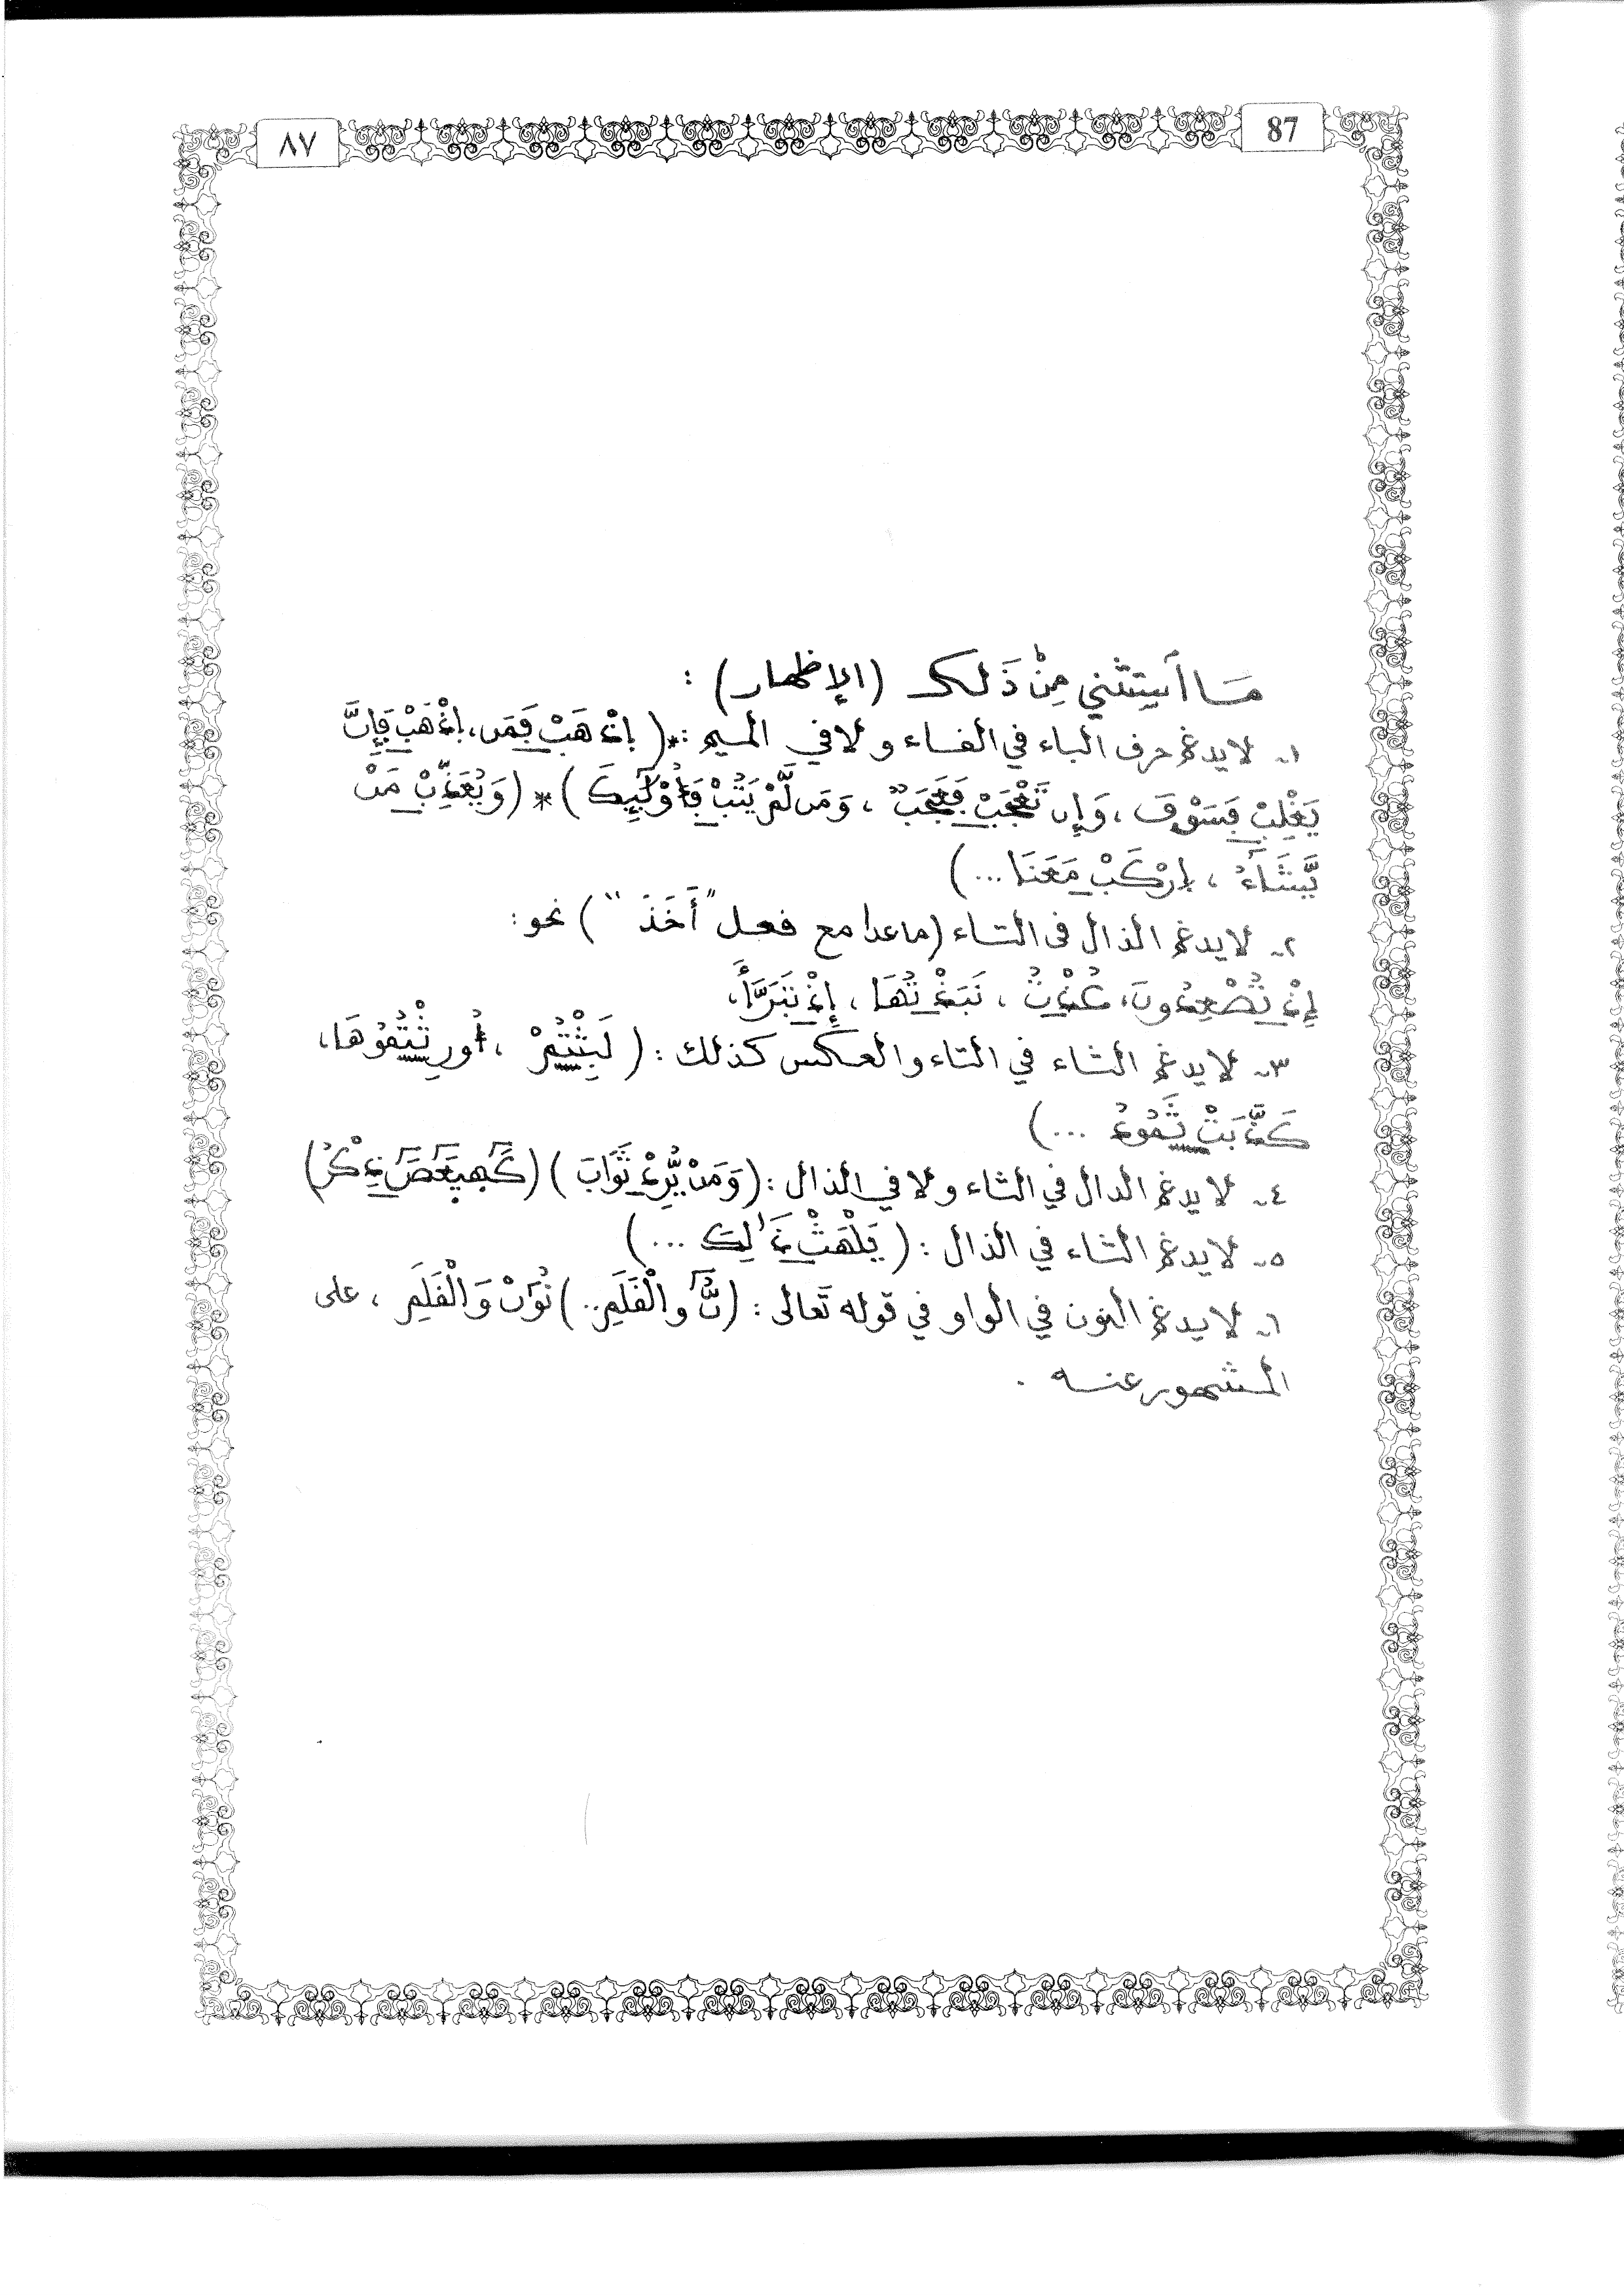 87
٨٧
مَا اُستثني مِنْ ذَلك (الإظهار) :
١- لا يدغم حرف الباء في الفاء ولا في الميم :*( اِذْهَبْ فَمَن، اِذْهَبْ فَإِنَّ
يَغْلِبْ فَسَوْفَ ، وَإِن تَعْجَبْ فَعَجَبٌ ، وَمَن لَّمْ يَتُبْ فَأُوْلَٰٓئِكَ ) * (وَيُعَذِّبْ مَنْ
يَّشَآءُ ، اِرْكَبْ مَعَنَا ...)
٢- لا يدغم الذال في التاء (ماعدا مع فعل "أَخَذَ") نحو:
إِذْ تُصْعِدُونَ، عُذْتُ ، نَبَذْتُهَا ، إِذْ تَبَرَّأَ،
٣- لا يدغم الثاء في التاء والعكس كذلك : ( لَبِثْتُمْ ، أُورِثْتُمُوهَا،
كَذَّبَتْ ثَمُودُ ...)
٤- لا يدغم الدال في الثاء ولا في الذال : (وَمَنْ يُّرِدْ ثَوَابَ ) (كَهيعَصَ ذِكْرُ)
٥- لا يدغم الثاء في الذال : ( يَلْهَثْ ذَٰلِكَ ...)
٦- لا يدغم النون في الواو في قوله تَعالى : (نٓ وَالْقَلَمِ..) نُونْ وَالْقَلَمِ ، على
المشهور عنه .